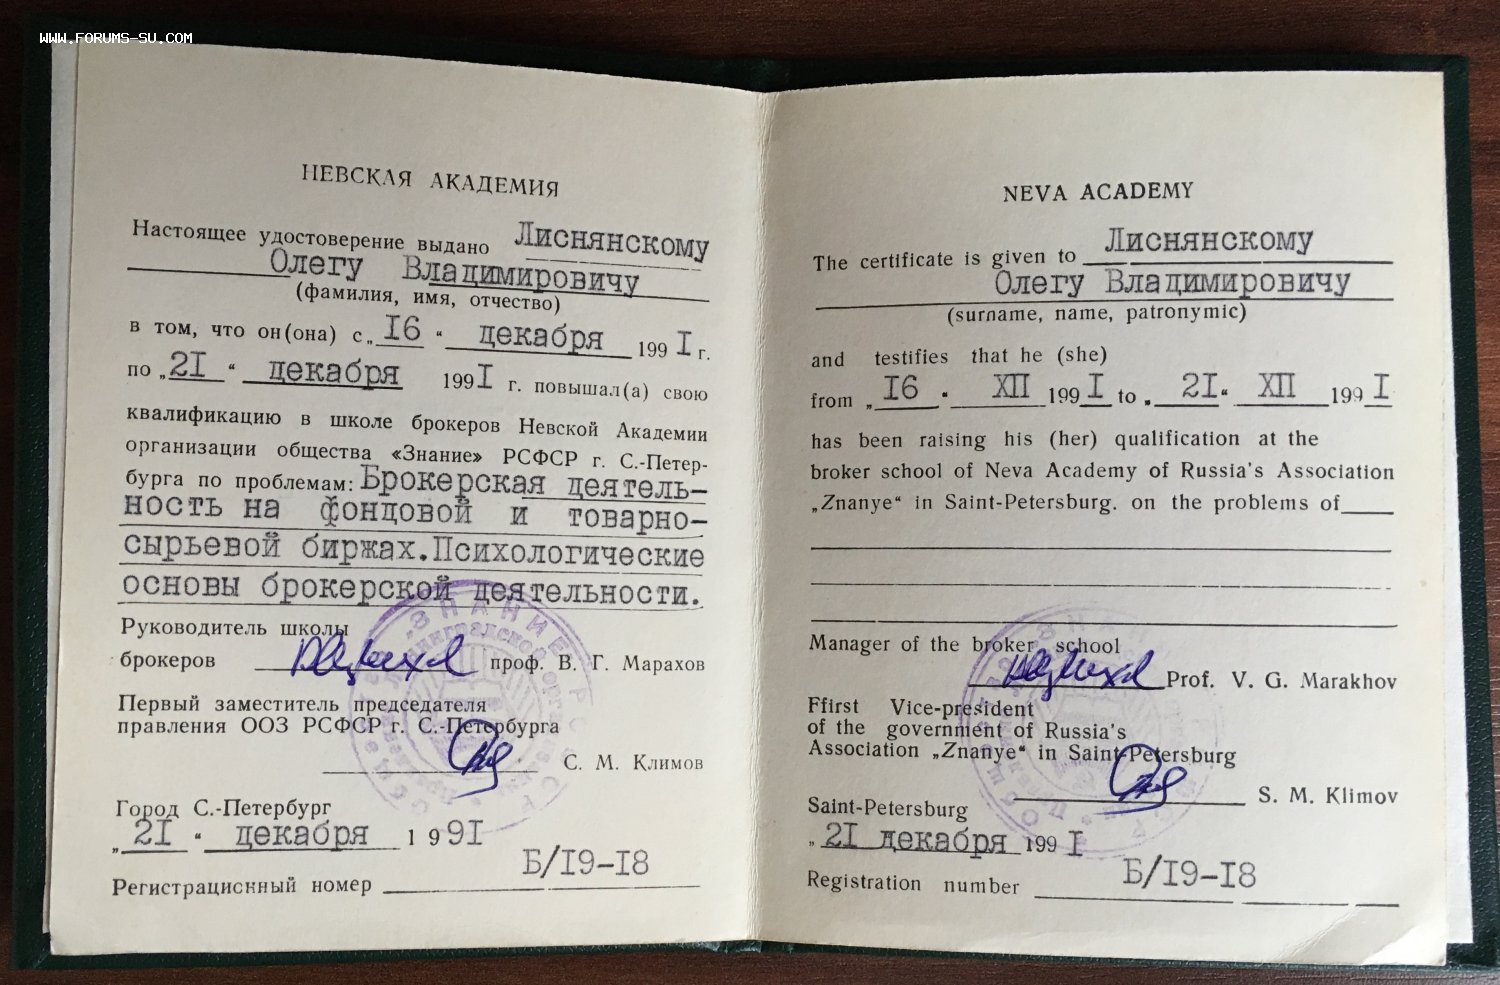 WWW.FORUMS-SU.COM
НЕВСКАЯ АКАДЕМИЯ
Настоящее удостоверение выдано Лиснянскому
Олегу Владимировичу
(фамилия, имя, отчество)
в том, что он(она) с „16“ декабря 1991 г.
по „21“ декабря 1991 г. повышал(а) свою
квалификацию в школе брокеров Невской Академии
организации общества «Знание» РСФСР г. С.-Петер-
бурга по проблемам: Брокерская деятель-
ность на фондовой и товарно-
сырьевой биржах.Психологические
основы брокерской деятельности.
Руководитель школы
брокеров проф. В. Г. Марахов
Первый заместитель председателя
правления ООЗ РСФСР г. С.-Петербурга
С. М. Климов
Город С.-Петербург
„21“ декабря 1991
Б/19-18
Регистрационный номер
NEVA ACADEMY
The certificate is given to Лиснянскому
Олегу Владимировичу
(surname, name, patronymic)
and testifies that he (she)
from „16“ XII 1991 to „21“ XII 1991
has been raising his (her) qualification at the
broker school of Neva Academy of Russia's Association
„Znanye“ in Saint-Petersburg. on the problems of
Manager of the broker school
Prof. V. G. Marakhov
Ffirst Vice-president
of the government of Russia's
Association „Znanye“ in Saint-Petersburg
S. M. Klimov
Saint-Petersburg
„21 декабря 1991
Б/19-18
Registration number